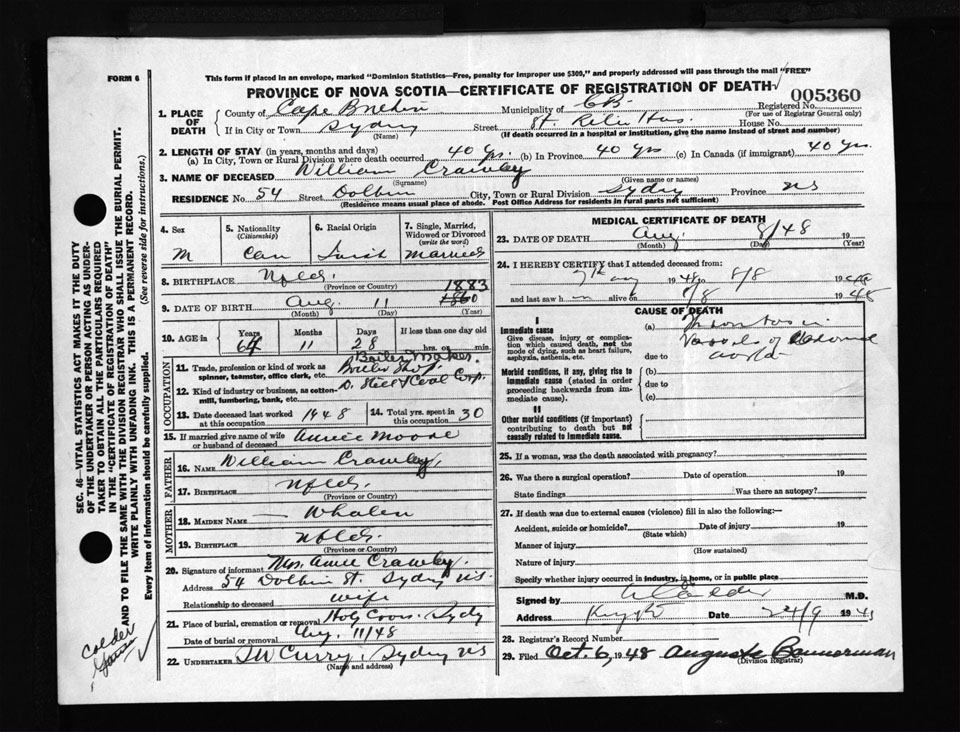 FORM 6
This form if placed in an envelope, marked "Dominion Statistics—Free, penalty for improper use $300," and properly addressed will pass through the mail "FREE"
PROVINCE OF NOVA SCOTIA—CERTIFICATE OF REGISTRATION OF DEATH
005360
1. PLACE OF DEATH
County of Cape Breton Municipality of C.B. Registered No.
(For use of Registrar General only)
If in City or Town Sydney Street St. Rita Hos. House No.
(Name) (If death occurred in a hospital or institution, give the name instead of street and number)
2. LENGTH OF STAY (in years, months and days)
(a) In City, Town or Rural Division where death occurred 40 yrs. (b) In Province 40 yrs (c) In Canada (if immigrant) 40 yrs.
3. NAME OF DECEASED William Crawley
(Surname) (Given name or names)
RESIDENCE No. 54 Street Dolbin City, Town or Rural Division Sydney Province NS
(Residence means usual place of abode. Post Office Address for residents in rural parts not sufficient)
4. Sex
M
5. Nationality (Citizenship)
Can
6. Racial Origin
Irish
7. Single, Married, Widowed or Divorced (write the word)
Married
8. BIRTHPLACE Nfld.
(Province or Country)
1883
9. DATE OF BIRTH Aug. 11 1860
(Month) (Day) (Year)
10. AGE in
Years Months Days If less than one day old
64 11 28 hrs. or min.
OCCUPATION
11. Trade, profession or kind of work as spinner, teamster, office clerk, etc. Boiler Maker. Boiler Shop.
12. Kind of industry or business, as cotton-mill, lumbering, bank, etc. D. Steel & Coal Corp.
13. Date deceased last worked at this occupation 1948
14. Total yrs. spent in this occupation 30
15. If married give name of wife or husband of deceased Annie Moore
FATHER
16. NAME William Crawley
17. BIRTHPLACE Nfld.
(Province or Country)
MOTHER
18. MAIDEN NAME — Whalen
19. BIRTHPLACE Nfld.
(Province or Country)
20. Signature of informant Mrs. Annie Crawley.
Address 54 Dolbin St. Sydney NS.
Relationship to deceased wife
21. Place of burial, cremation or removal Holy Cross. Sydney
Date of burial or removal Aug. 11/48
22. UNDERTAKER Curry, Sydney NS
(Name and address)
MEDICAL CERTIFICATE OF DEATH
23. DATE OF DEATH Aug. 8/48 19
(Month) (Day) (Year)
24. I HEREBY CERTIFY that I attended deceased from:
7th Aug 1948 to 8/8 1948
and last saw him alive on 7/8 1948
CAUSE OF DEATH
I
Immediate cause
Give disease, injury or complication which caused death, not the mode of dying, such as heart failure, asphyxia, asthenia, etc.
(a) Thrombosis in
due to Vessels of Abdominal aorta
Morbid conditions, if any, giving rise to immediate cause (stated in order proceeding backwards from immediate cause).
(b)
due to
(c)
II
Other morbid conditions (if important) contributing to death but not causally related to immediate cause.
25. If a woman, was the death associated with pregnancy?
26. Was there a surgical operation? Date of operation 19
State findings Was there an autopsy?
27. If death was due to external causes (violence) fill in also the following:—
Accident, suicide or homicide? Date of injury 19
(State which)
Manner of injury
(How sustained)
Nature of injury
Specify whether injury occurred in industry, in home, or in public place
Signed by Calder M.D.
Address Date 24/9 19
28. Registrar's Record Number
29. Filed Oct. 6, 1948 Augusta Bannerman
(Division Registrar)
SEC. 46—VITAL STATISTICS ACT MAKES IT THE DUTY
OF THE UNDERTAKER OR PERSON ACTING AS UNDER-
TAKER TO OBTAIN ALL THE PARTICULARS REQUIRED
IN THE "CERTIFICATE OF REGISTRATION OF DEATH"
AND TO FILE THE SAME WITH THE DIVISION REGISTRAR WHO SHALL ISSUE THE BURIAL PERMIT.
WRITE PLAINLY WITH UNFADING INK. THIS IS A PERMANENT RECORD.
Every item of information should be carefully supplied. (See reverse side for instructions.)
Calder